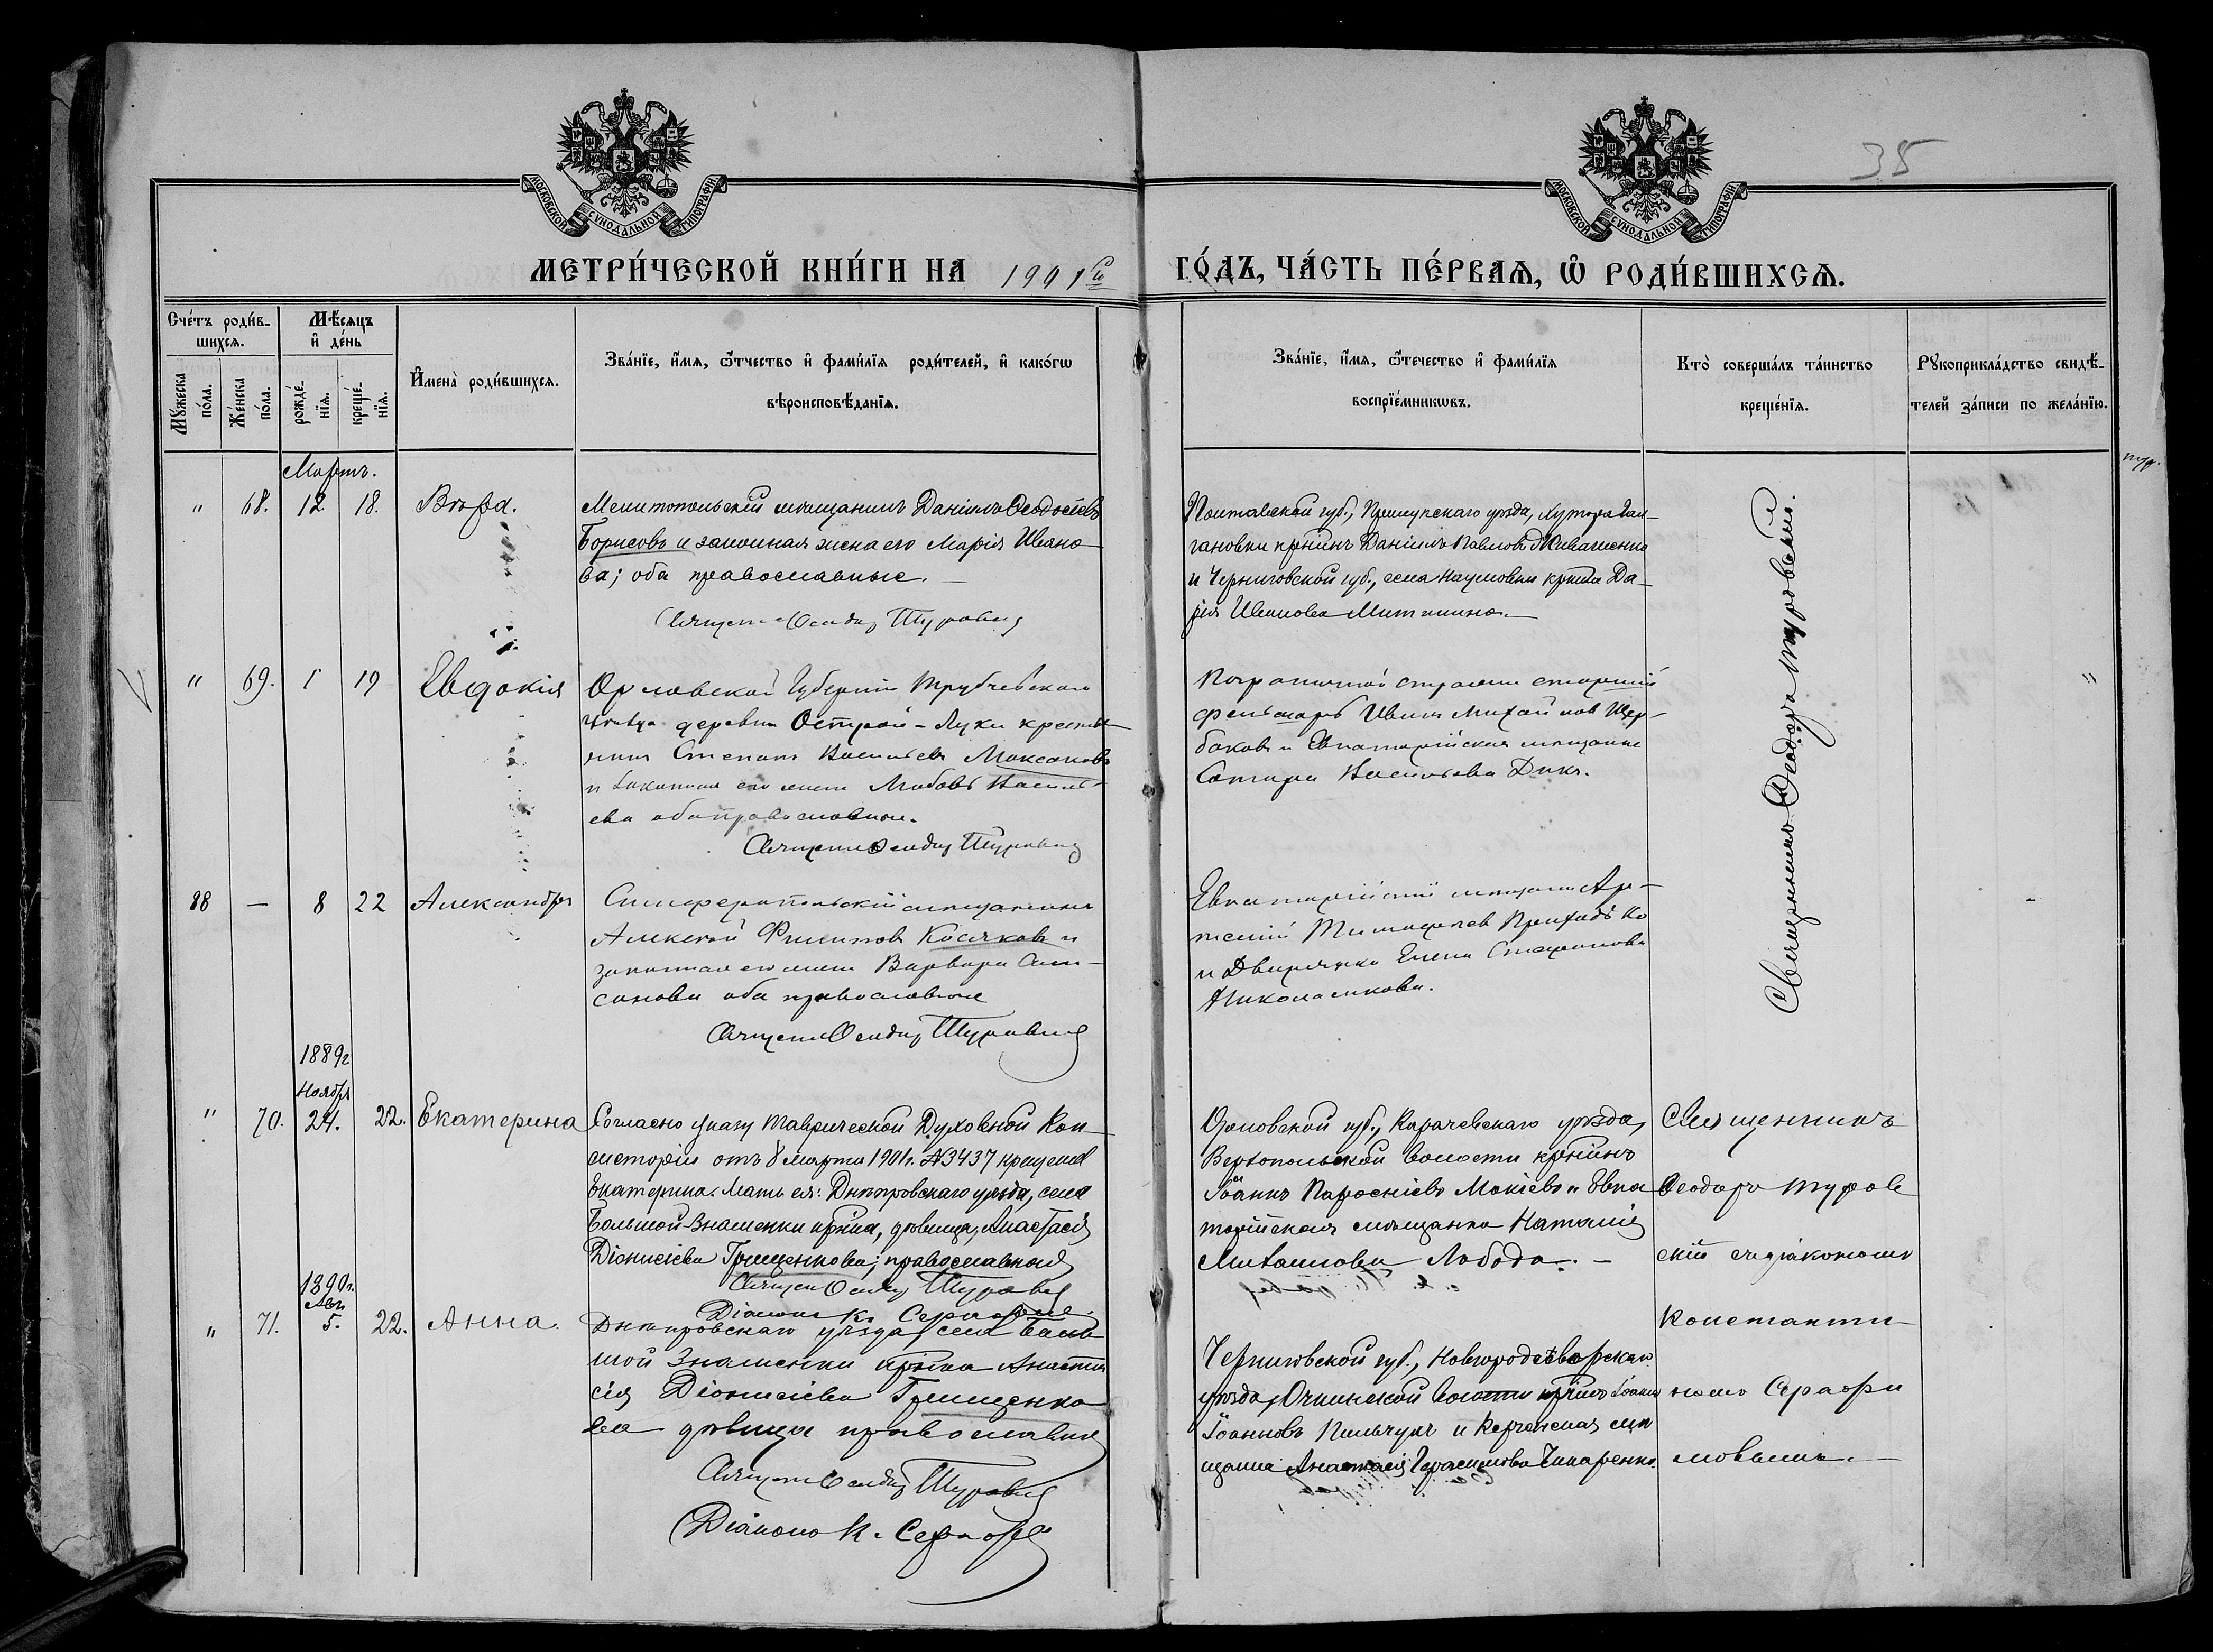 МОСКОВСКОЙ СѴНОДАЛЬНОЙ ТИПОГРАФІИ
МОСКОВСКОЙ СѴНОДАЛЬНОЙ ТИПОГРАФІИ
35
МЕТРИ́ЧЕСКОЙ КНИ́ГИ НА 1901й ГО́ДЪ, ЧА́СТЬ ПЕ́РВАѦ, Ѡ РОДИ́ВШИХСѦ.
Сче́тъ роди́в-
шихсѧ.
Мѣ́сяцъ
и де́нь
Мꙋ́жеска
по́ла.
Же́нска
по́ла.
рожде́-
нїѧ.
креще́-
нїѧ.
Имена̀ роди́вшихсѧ.
Зва́нїе, и́мѧ, ѿтчество и фами́лїѧ роди́телей, и како́гѡ
вѣроисповѣ́данїѧ.
Зва́нїе, и́мѧ, ѿтечество и фами́лїѧ
воспрїе́мникѡвъ.
Кто̀ соверша́лъ та́инство
креще́нїѧ.
Рꙋкоприкла́дство свидѣ́-
телей за́писи по жела́нїю.
Мартъ.
" 68. 12 18. Вѣра.
Мелитопольскій мѣщанинъ Даніилъ Ѳеодосіевъ
Борисовъ и законная жена его Марія Ивано-
ва; оба православные.
Священ. Ѳеодор Туровскій
Полтавской губ., Прилукскаго уѣзда, хутора Гал-
гановки кр̃нинъ Даніилъ Павловъ
и Черниговской губ., села Наумовки кр̃нка Да-
рія Иванова
Священникъ Ѳеодоръ Туровскій.
" 69. 1 19 Евдокія
Орловской Губерніи Трубчевскаго
уѣзда деревни Острой-Луки крестья
нинъ Степанъ Васильевъ Максаковъ
и законная его жена Любовь Василь-
ева оба православные.
Священ. Ѳеодор Туровскій
Пограничной стражи старшій
фельдшеръ Иванъ Михайлов Щер-
баковъ и Евпаторійская мѣщанка
Васильева
"
88 — 8 22 Александръ
Симферопольскій мѣщанинъ
Алексѣй Филиповъ Косяковъ и
законная его жена Варвара Сам-
сонова оба православные
Священ. Ѳеодор Туровскій
Евпаторійскій мѣщан. Ар-
темій Приходько
и Дворянка Елена Стефанова
1889г
Ноября
" 70. 24. 22. Екатерина
Согласно указу Таврической Духовной Кон-
систоріи отъ 8 марта 1901г. № 3437 крещена
Екатерина. Мать ея: Днѣпровскаго уѣзда, села
Большой-Знаменки кр̃нка, дѣвица, Анастасія
Діонисіева Грищенкова; православная
Священ Ѳеодор Туровскій
Діаконъ К. Серафим.
Орловской губ., Карачевскаго уѣзда,
Верхопольской волости кр̃нинъ
Іоаннъ Мокіевъ и Евпа
торійская мѣщанка Наталія
Михаилова Лобода. -
Священникъ
Ѳеодоръ Туров
скій съ діакономъ
Константи-
номъ Серафи
мовымъ.
1890г.
Авг
" 71. 5. 22. Анна.
Днѣпровскаго уѣзда, села Боль
шой Знаменки кр̃нка Анаста
сія Діонисіева Грищенко
ва дѣвица православная
Священ Ѳеодор Туровскій
Діаконъ К. Серафи
Черниговской губ., Новгородсѣверскаго
уѣзда, Очкинской волости кр̃нинъ Іоаннъ
Іоанновъ Пильчукъ и Керченская мѣ
щанка Анастасія Герасимова